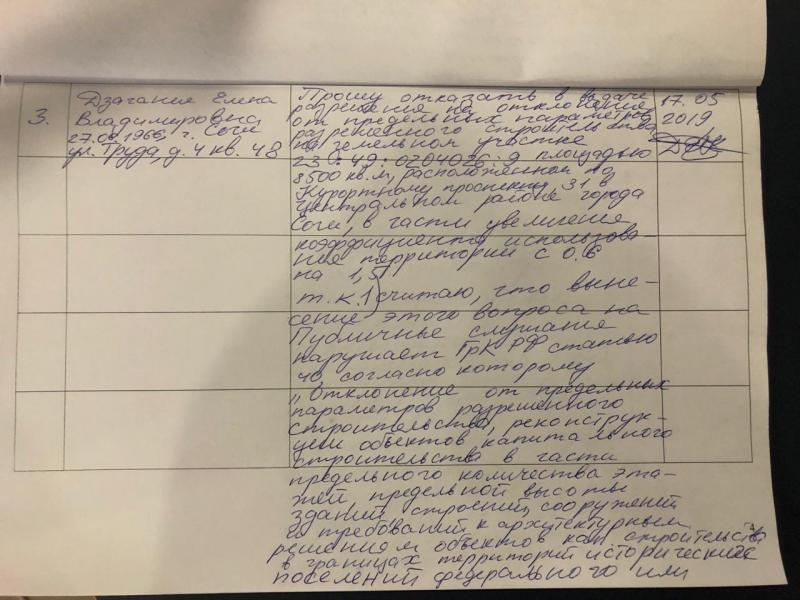 3.
Дзагания Елена
Владимировна
27.02.1966 г. Сочи
ул. Труда, д. 4 кв. 48
Прошу отказать в выдаче
разрешения на отклонения
от предельных параметров
разрешенного строительства
на земельном участке
23:49:0204026:9 площадью
8500 кв.м, расположенном по
Курортному проспекту, 31 в
Центральном районе города
Сочи, в части увеличения
коэффициента использова-
ния территории с 0.6
на 1,5
т.к. 1) считаю, что выне-
сение этого вопроса на
Публичные слушания
нарушает ГрК РФ статью
40, согласно которому
„Отклонение от предельных
параметров разрешенного
строительства, реконструк-
ции объектов капитального
строительства в части
предельного количества эта-
жей, предельной высоты
зданий, строений, сооружений
и требований к архитектурным
решениям объектов кап. строительства
в границах территорий исторических
поселений федерального или
17.05
2019